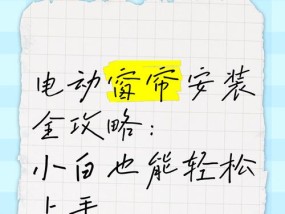 电动窗帘安装
全攻略：
小白也能轻松
上手